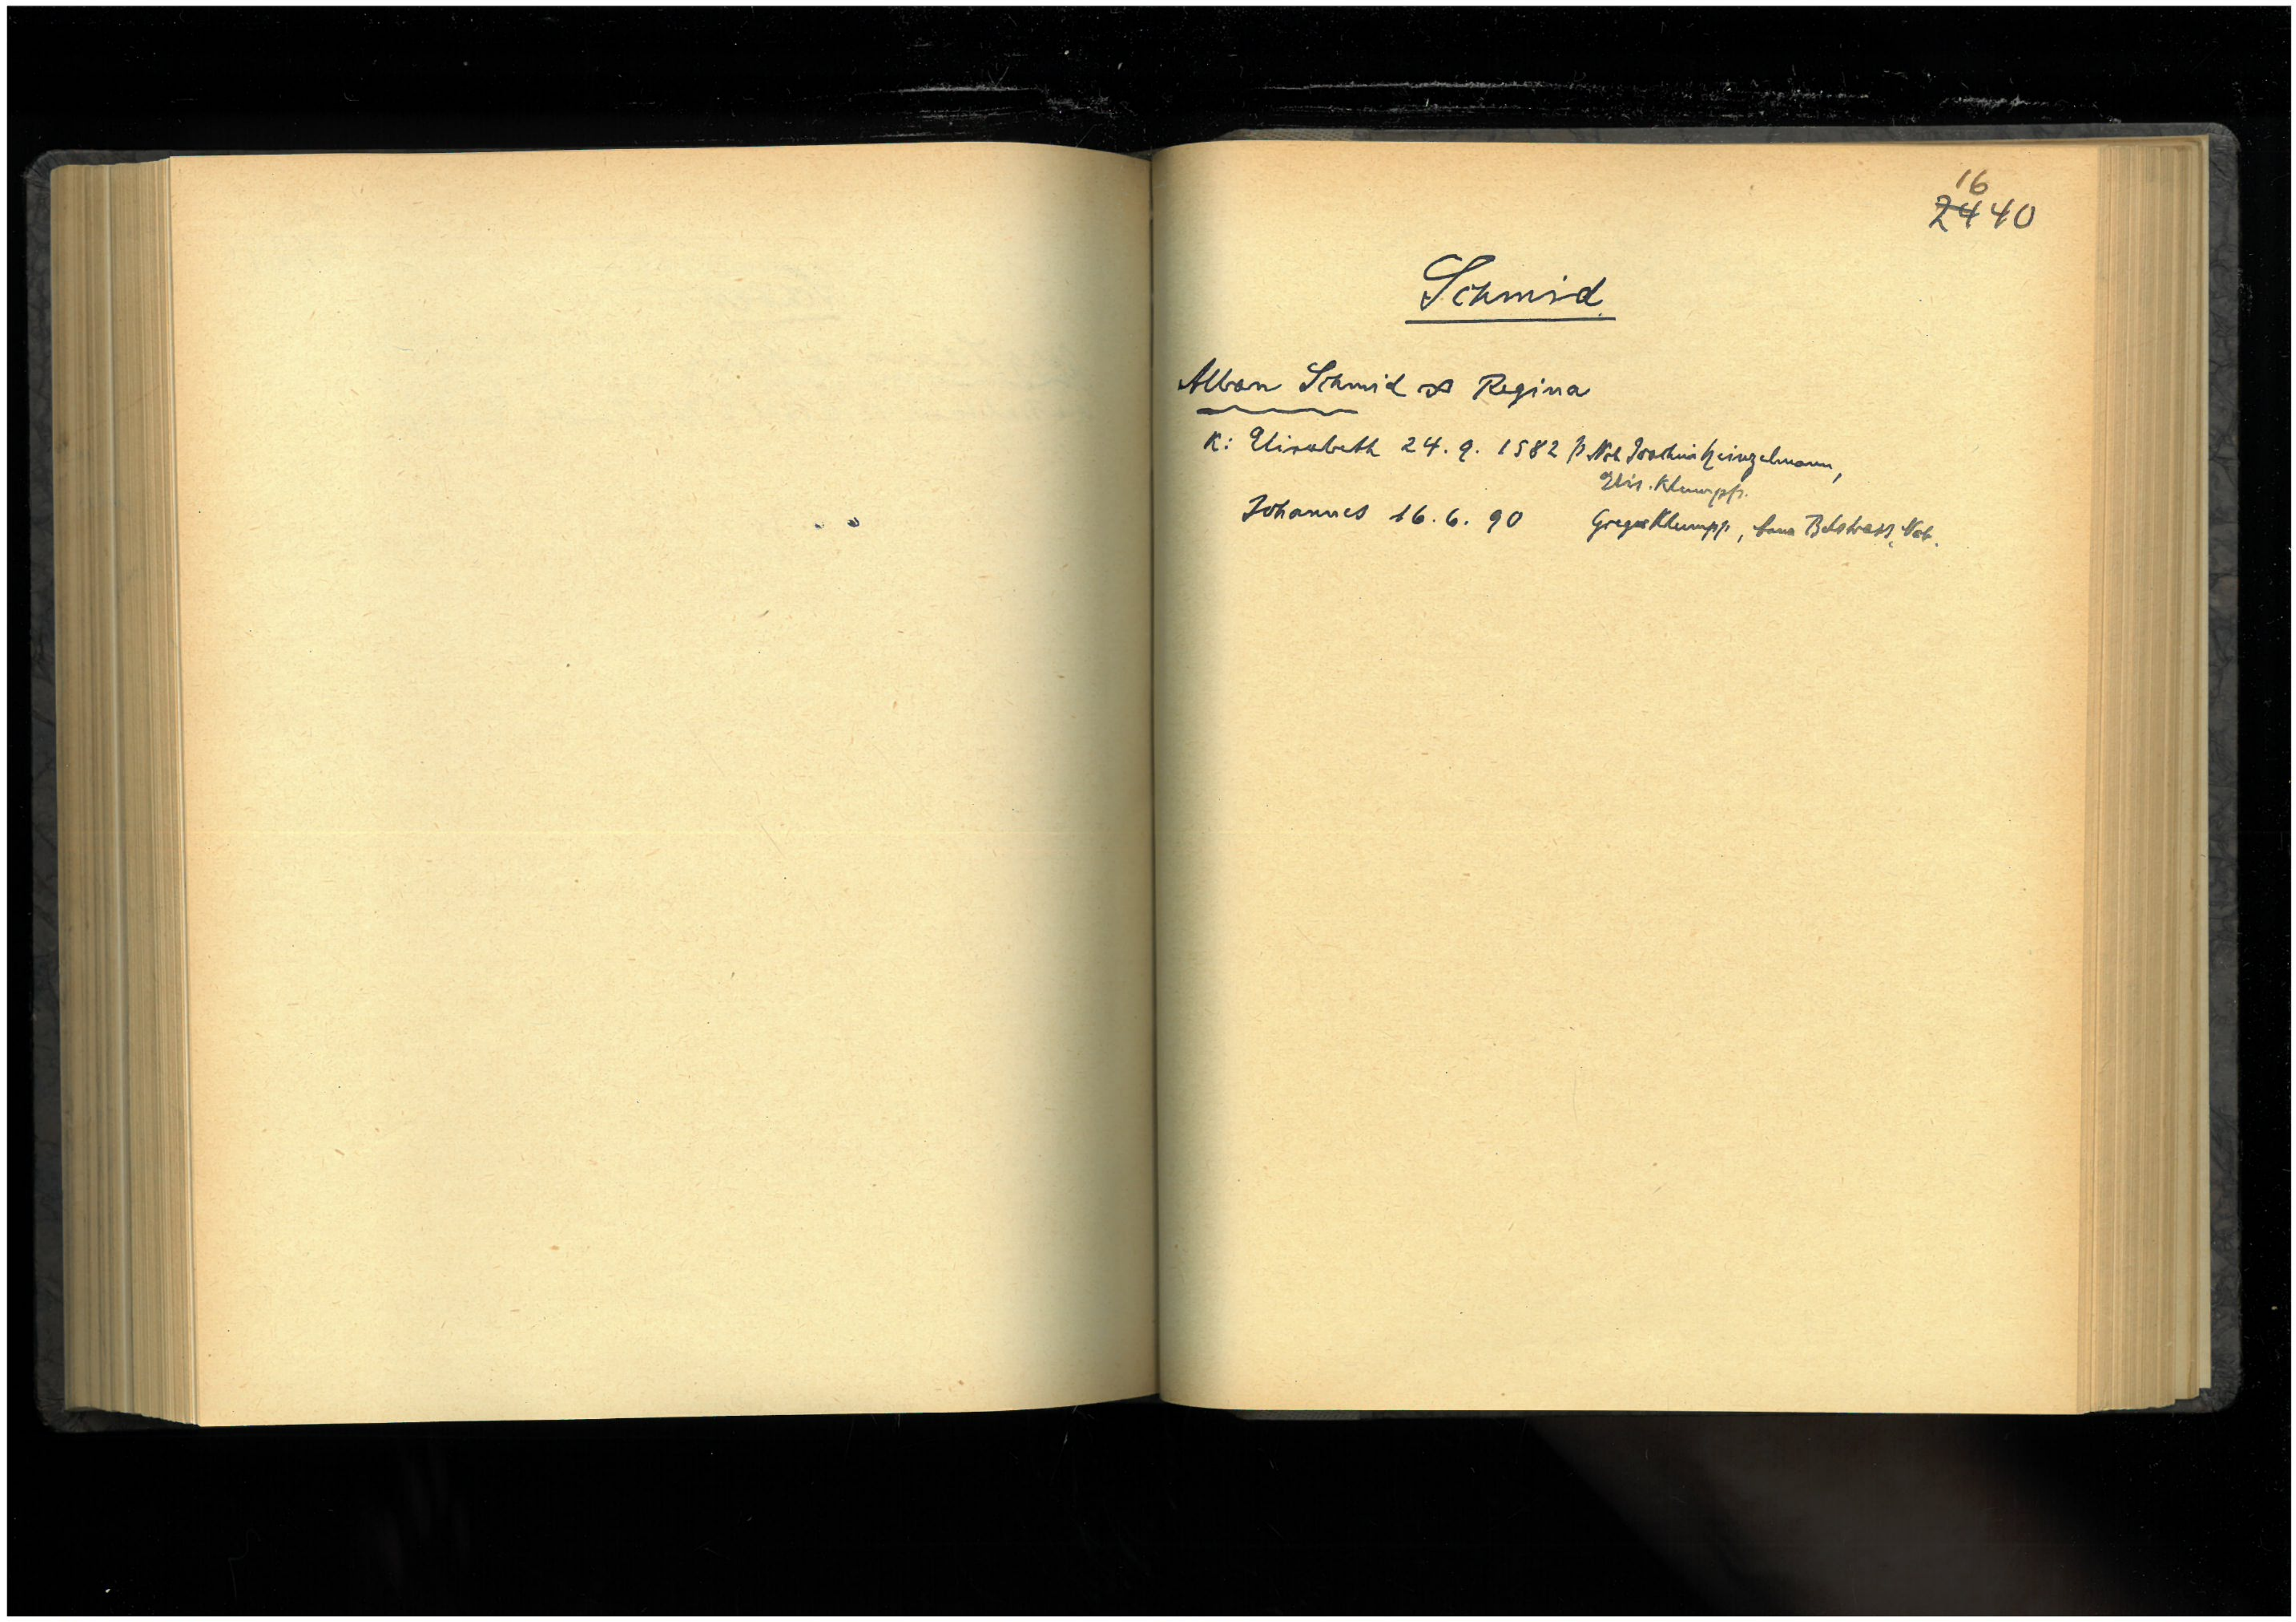 16
24 40
Schmid
Alban Schmid ∞ Regina
K: Elisabeth 24. 9. 1582 p Nob Joachim Heinzelmann,
Elis. Klumpp.
Johannes 16. 6. 90 Gregor Klumpp, Nob.